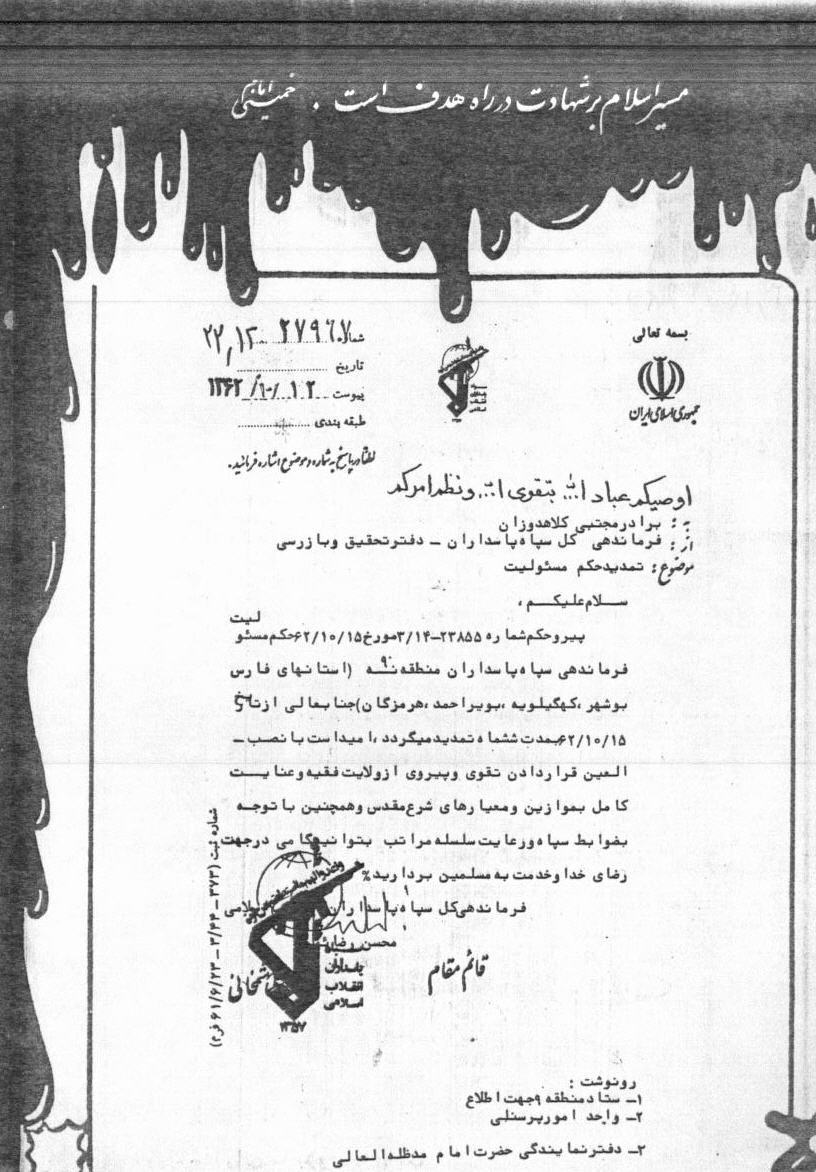 مسیر اسلام بر شهادت در راه هدف است . امام خمینی
بسمه تعالی
جمهوری اسلامی ایران
شماره ۲۷۹۶۷
۲۲,۱۲
تاریخ
پیوست ۱۲ /۱۰/ ۱۳۶۲
طبقه بندی
لطفا در پاسخ به شماره و موضوع اشاره فرمائید.
اوصیکم عباد الله بتقوی الله و نظم امرکم
به : برادر مجتبی کلاهدوزان
از : فرماندهی کل سپاه پاسداران ـ دفتر تحقیق و بازرسی
موضوع : تمدید حکم مسئولیت
سلام علیکم ،
پیرو حکم شماره ۲۳۸۵۵-۳/۱۴ مورخ ۶۲/۱۰/۱۵ حکم مسئولیت
فرماندهی سپاه پاسداران منطقه نه ۹ (استانهای فارس
بوشهر ،کهگیلویه ،بویراحمد ،هرمزگان) جنابعالی از تاریخ
۶۲/۱۰/۱۵ بمدت ششماه تمدید میگردد ،امید است با نصب ـ
العین قرار دادن تقوی و پیروی از ولایت فقیه و عنایت
کامل بموازین و معیارهای شرع مقدس و همچنین با توجه
بضوابط سپاه و رعایت سلسله مراتب بتوانید گامی در جهت
رضای خدا و خدمت به مسلمین بردارید %
فرماندهی کل سپاه پاسداران
محسن رضائی
قائم مقام
شمخانی
سپاه
پاسداران
انقلاب
اسلامی
۱۳۵۷
شماره ثبت (۳۷۳ - ۳/۴۴ - ۶۱/۶/۲۳ فر۲)
رونوشت :
۱ـ ستاد منطقه ۹ جهت اطلاع
۲ـ واحد امور پرسنلی
۲ـ دفتر نمایندگی حضرت امام مدظله العالی